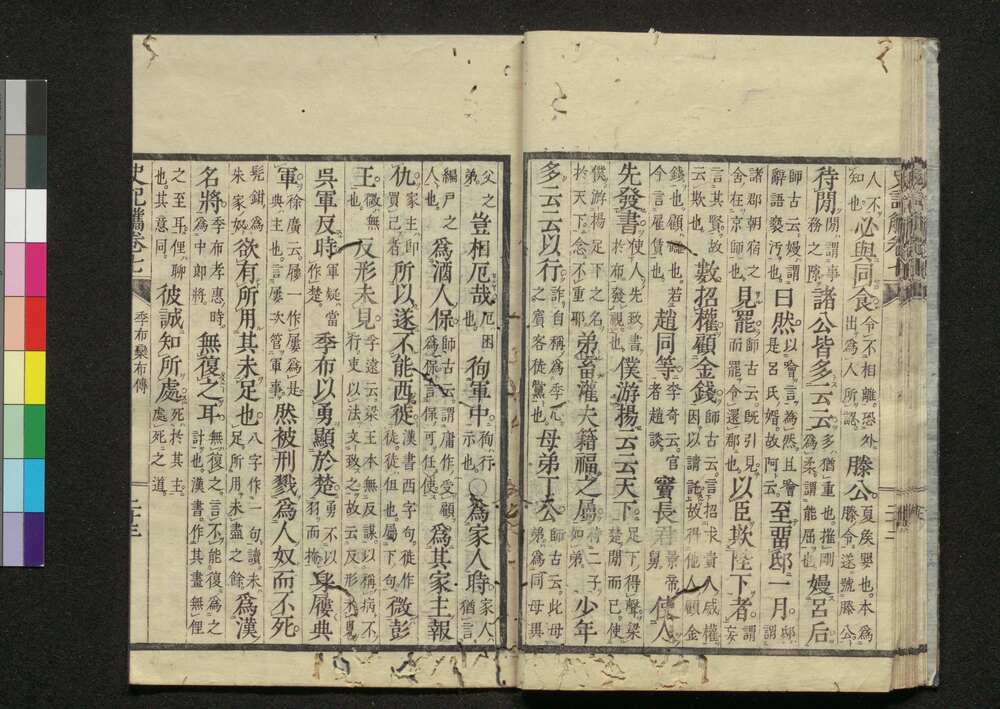 人不
知也
必與同食
令不相離恐外
出為人所認
滕公
夏侯嬰也本為
滕令遂號滕公
待閒
閒謂事
務之隙
諸公皆多云云
多猶重也摧剛
為柔謂能屈也
嫚呂后
師古云嫚謂
辭語褻汚也
曰然
以噲言為然且噲
是呂氏婿故阿云
至畱邸一月
邸謂
諸郡朝宿之
舍在京師也
見罷
師古云既引見
而罷令還郡也
以臣欺陛下者
謂妄
言其賢故
云欺也
數招權顧金錢
師古云言招求貴人威權
因以請託故得他人顧金
錢也顧
言雇賃也
趙同等
李奇云宦
者趙談
竇長君
景帝
舅
使人
先發書
使人先致書
於布發視也
僕游揚云云天下
足下得聲梁
楚閒而已使
僕游揚足下之名
於天下念不重耶
弟畜灌夫籍福之屬
待二子
如弟
少年
多云云以行
詐自稱為季
之賓客徒黨也
母弟丁公
師古云此母
弟為同母異
父之
弟
豈相厄哉
厄困
也
徇軍中
徇行
示也
○為家人時
家人
猶言
編戶之
人也
為酒人保
師古云謂庸作受顧
為保言保可任使
為其家主報
仇
家主即
買己者
所以遂不能西徙
漢書西字句徙作
徒徒但也屬下句
微彭
王
微無
也
反形未見
李遠云梁王本無反謀以稱病不
行吏以法文致之故云反形未見
吳軍反時
軍疑當
作楚
季布以勇顯於楚
勇不以
羽而掩
身屨典
軍
徐廣云屨一作屢為是
典主也言屢次管軍事
然被刑戮為人奴而不死
髡鉗為
朱家奴
欲有所用其未足也
八字作一句讀未
足所用未盡之餘
為漢
名將
季布孝惠時
為中郎將
無復之耳
無復之言不能復為之
計也漢書作其畫無俚
之至耳俚聊
也其意同
彼誠知所處
死於其主
處死之道
史記觿卷七
季布欒布傳
二十三